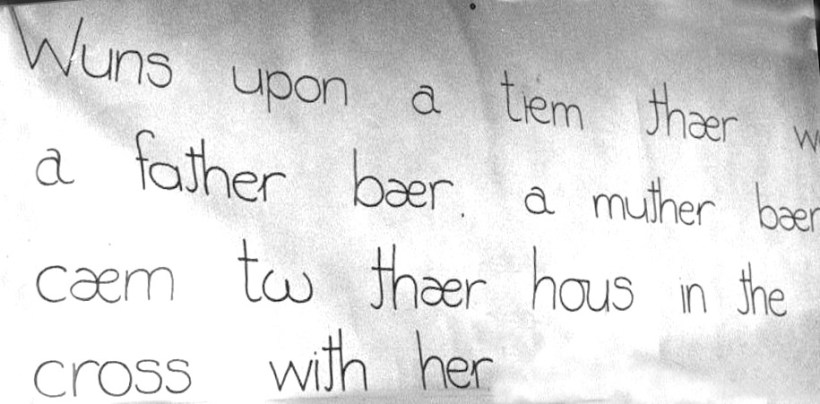 Wuns upon a tiem thær
a father bær. a muther bær
cæm tω thær hous in the
cross with her